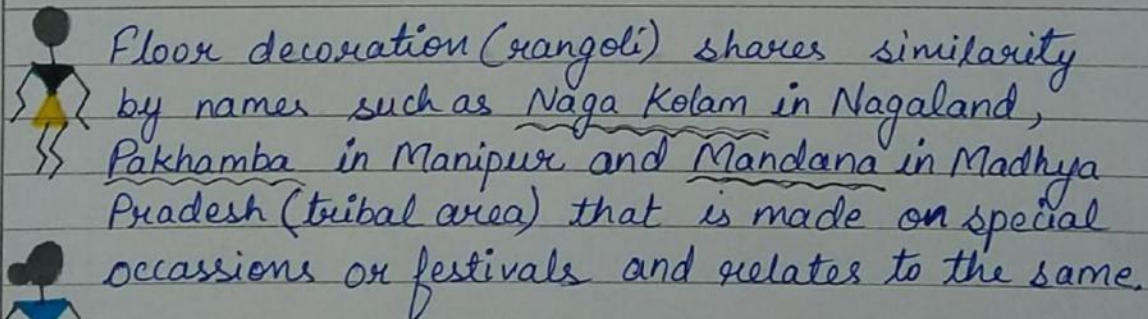 Floor decoration (rangoli) shares similarity
by names such as Naga Kolam in Nagaland,
Pakhamba in Manipur and Mandana in Madhya
Pradesh (tribal area) that is made on special
occassions or festivals and relates to the same.